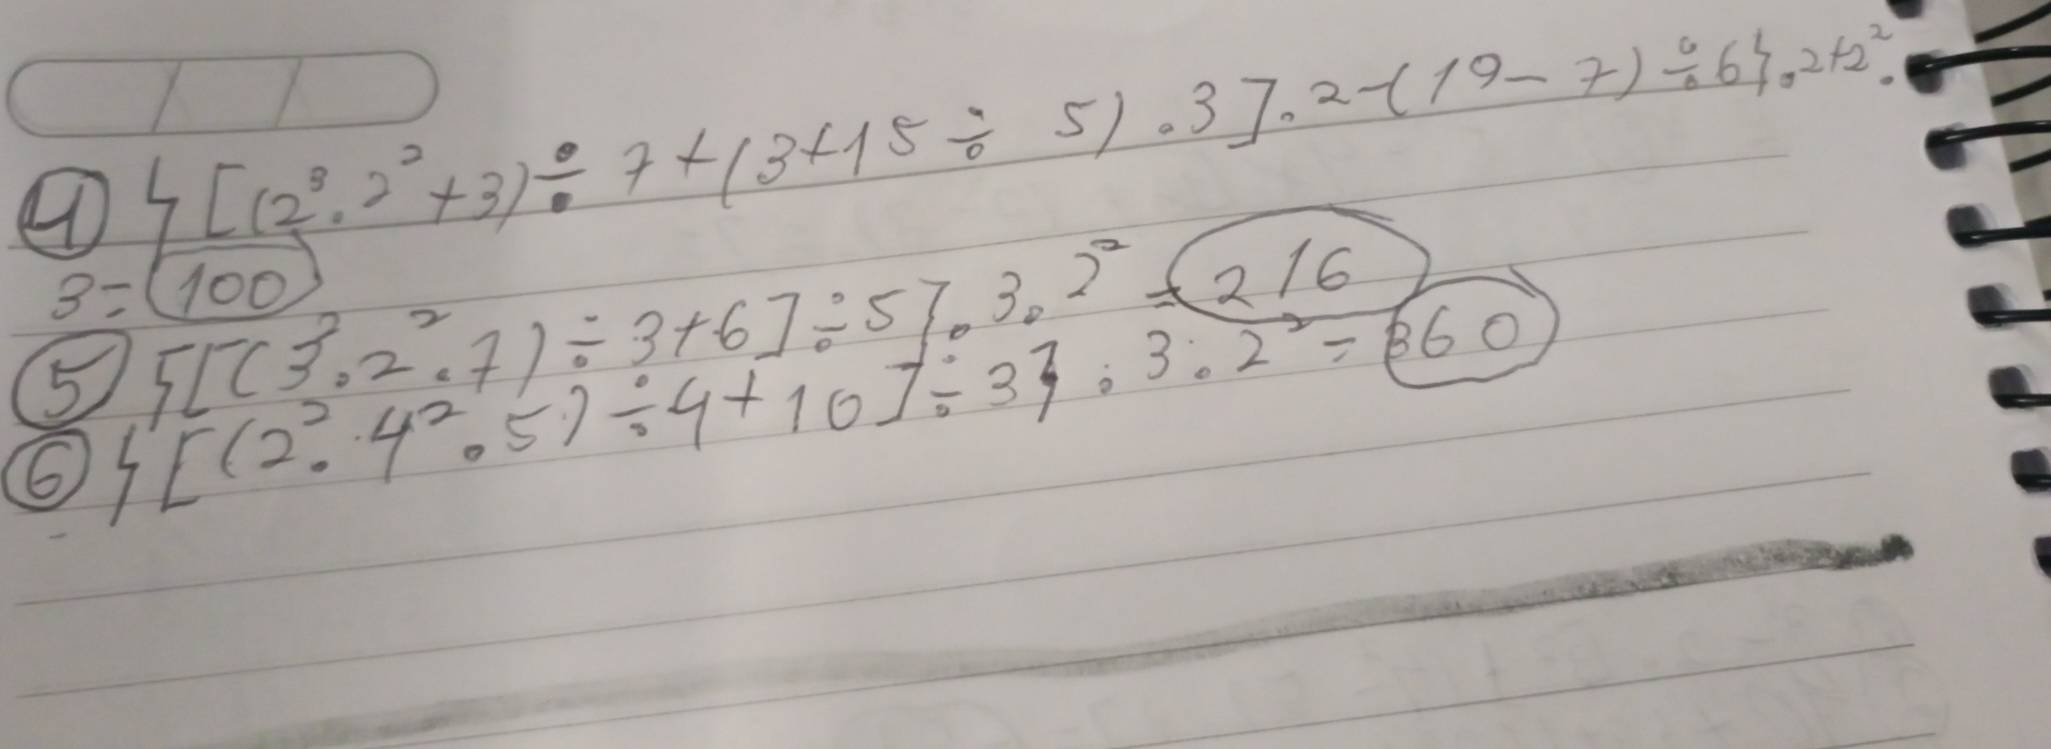 ④ {[(2³.2²+3)÷7+(3+15÷5).3].2-(19-7)÷6}.2+2².
3=100
⑤ {[(3³.2².7)÷3+6]÷5}.3.2²=216
⑥ {[(2².4².5)÷4+10]÷3}.3.2²=360